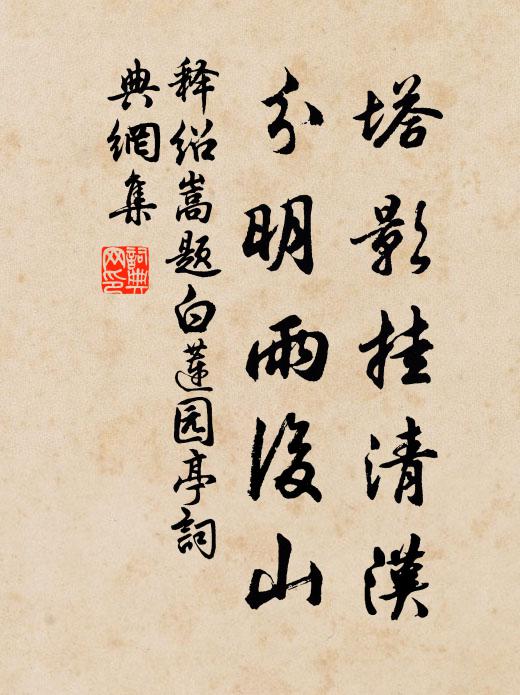 塔影挂清漢
分明雨後山
释绍嵩题白蓮园亭詞
典網集
詞典網印